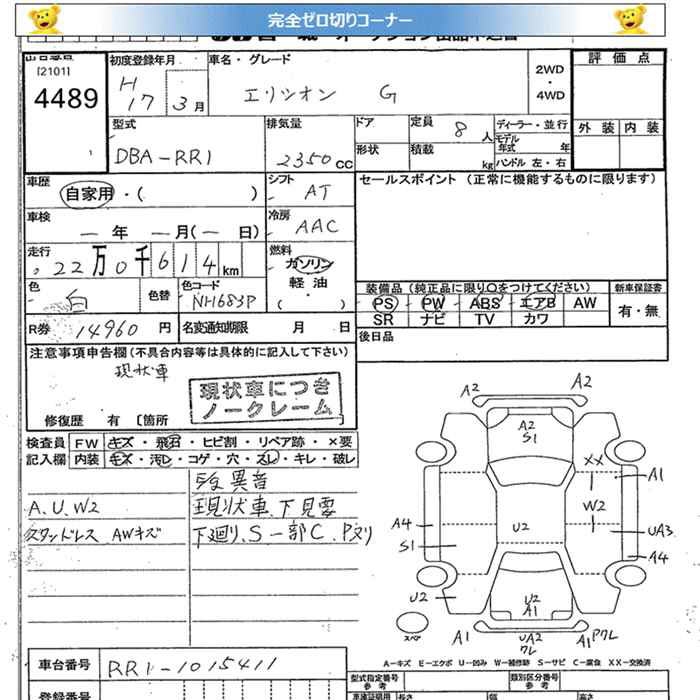 完全ゼロ切りコーナー
[2101]
4489
初度登録年月
H
17 3月
車名・グレード
エリシオン G
2WD
・
4WD
評価点
外装 内装
型式
DBA-RR1
排気量
2350cc
ドア
形状
定員 8人
積載 kg
ディーラー・並行
モデル年式 年
ハンドル 左・右
車歴
自家用・( )
シフト
AT
セールスポイント (正常に機能するものに限ります)
車検
— 年 — 月(— 日)
冷房
AAC
走行
22万0千614km
燃料
ガソリン
軽油
・
( )
色
白
色替
色コード
NH683P
装備品(純正品に限り○をつけてください)
PS PW ABS エアB AW
SR ナビ TV カワ
新車保証書
有・無
R券 14960円
名変通知期限 月 日
後日品
注意事項申告欄(不具合内容等は具体的に記入して下さい)
現状車
現状車につき
ノークレーム
修復歴 有 〔箇所
検査員 FW キズ・飛石・ヒビ割・リペア跡・×要
記入欄 内装 キズ・汚レ・コゲ・穴・スレ・キレ・破レ
異音
A.U.W2
現状車.下見要
スタッドレス AWキズ
下廻り.S一部C.P又リ
A2
A2
A2
S1
XX
A1
W2
A4
U2
UA3
S1
A4
U2
U2
A1
スペア
A1
UA2
ワレ
A1
Pワレ
A-キズ E-エクボ U-凹み W-補修跡 S-サビ C-腐食 XX-交換済
車台番号 RR1-1015411
登録番号
型式指定番号
参考
類別区分番号
参考
長さ
幅
高さ